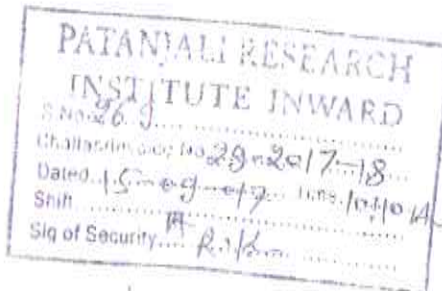 PATANJALI RESEARCH
INSTITUTE INWARD
S.No. 26
Challan/Invoice No 29-2017-18
Dated 15-09-017 Time 10:10 A
Shift A
Sig of Security